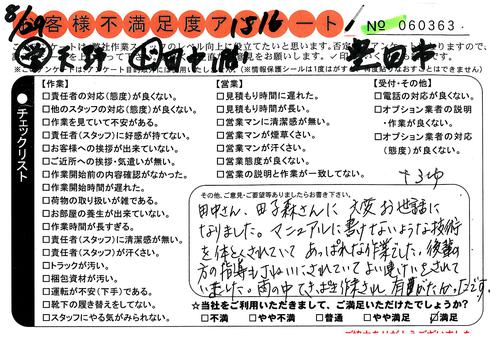 8/29
お客様不満足度アンケート！
1816
No 060363
豊田市
チェックリスト
【作業】
□責任者の対応(態度)が良くない。
□他のスタッフの対応(態度)が良くない。
□作業を見ていて不安がある。
□責任者(スタッフ)に好感が持てない。
□お客様への挨拶が出来ていない。
□ご近所への挨拶・気遣いが無い。
□作業開始前の内容確認がなかった。
□作業開始時間が遅れた。
□荷物の取り扱いが雑である。
□お部屋の養生が出来ていない。
□作業時間が長すぎる。
□責任者(スタッフ)に清潔感が無い。
□責任者(スタッフ)が汗くさい。
□トラックが汚い。
□梱包資材が汚い。
□運転が不安(下手)である。
□靴下の履き替えをしてない。
□スタッフにやる気がみられない。
【営業】
□見積もり時間に遅れた。
□見積もり時間が長い。
□営業マンに清潔感が無い。
□営業マンが煙草くさい。
□営業マンが汗くさい。
□営業態度が良くない。
□営業の説明と作業が一致してない。
【受付・その他】
□電話の対応が良くない。
□オプション業者の説明
・作業が良くない。
□オプション業者の対応
(態度)が良くない。
その他、ご意見・ご要望等ありましたらお書き下さい。
田中さん、田子森さんに大変お世話に
なりました。マニュアルに書けないような技術
を体とくされていて あっぱれな作業でした。後輩の
方の指導もていねいにされていて
雨の中
★当社をご利用いただきまして、ご満足いただけたでしょうか？
□不満 □やや不満 □普通 □やや満足 ☑満足